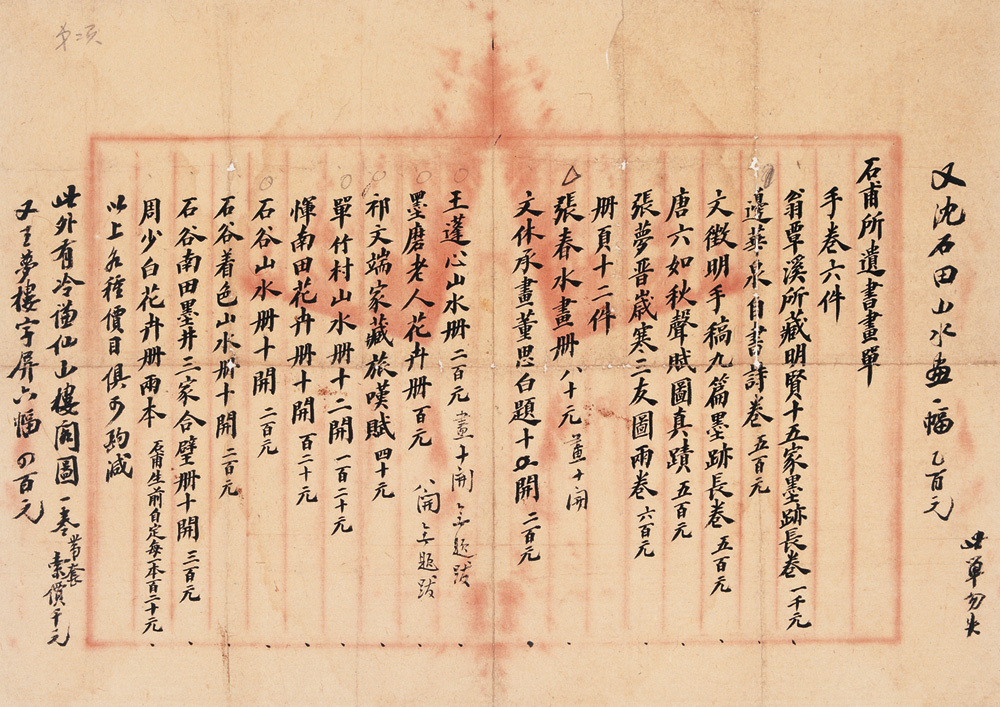 第二页
又沈石田山水畫一幅 乙百元
此單勿失
石甫所遺書畫單
手卷六件
翁覃溪所藏明賢十五家墨跡長卷 一千元
邊華泉自書詩卷 五百元
文徵明手稿九篇墨跡長卷 五百元
唐六如秋聲賦圖真蹟 五百元
張夢晋歲寒三友圖兩卷 六百元
册頁十二件
張春水畫册 八十元 畫十開
文休承畫董思白題十五開 二百元
王蓬心山水册 二百元 畫十開 無題跋
墨磨老人花卉册 百元 八開 無題跋
祁文端家藏旅嘆賦 四十元
單竹村山水册十二開 一百二十元
惲南田花卉册十開 百二十元
石谷山水册十開 二百元
石谷着色山水册十開 二百元
石谷南田墨井三家合璧册十開 三百元
周少白花卉册兩本 石甫生前自定每一本百二十元
以上各種價目俱可酌减
此外有冷謙仙山樓閣圖一卷 带套 索價千元
又王夢樓字屏六幅 四百元